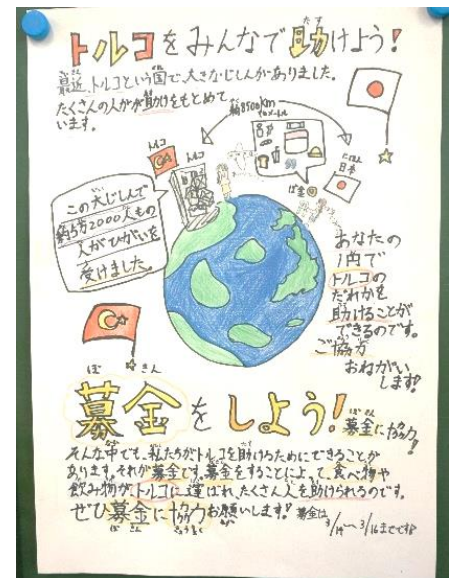 トルコをみんなで助けよう!
最近、トルコという国で、大きなじしんがありました。
たくさんの人がが助けをもとめて
います。
約8500km
キロメートル
トルコ
トルコ
にほん
日本
ぼ金
この大じしんで
約5万2000人もの
人がひがいを
受けました。
あなたの
1円で
トルコの
だれかを
助けることが
できるのです。
ご協力
おねがい
します!
募金をしよう!募金に協力!
そんな中でも、私たちがトルコを助けるためにできることが
あります。それが募金です。募金をすることによって、食べ物や
飲み物が、トルコに運ばれ、たくさん人を助けられるのです。
ぜひ募金に協力お願いします!募金は
3/14〜3/16までです!